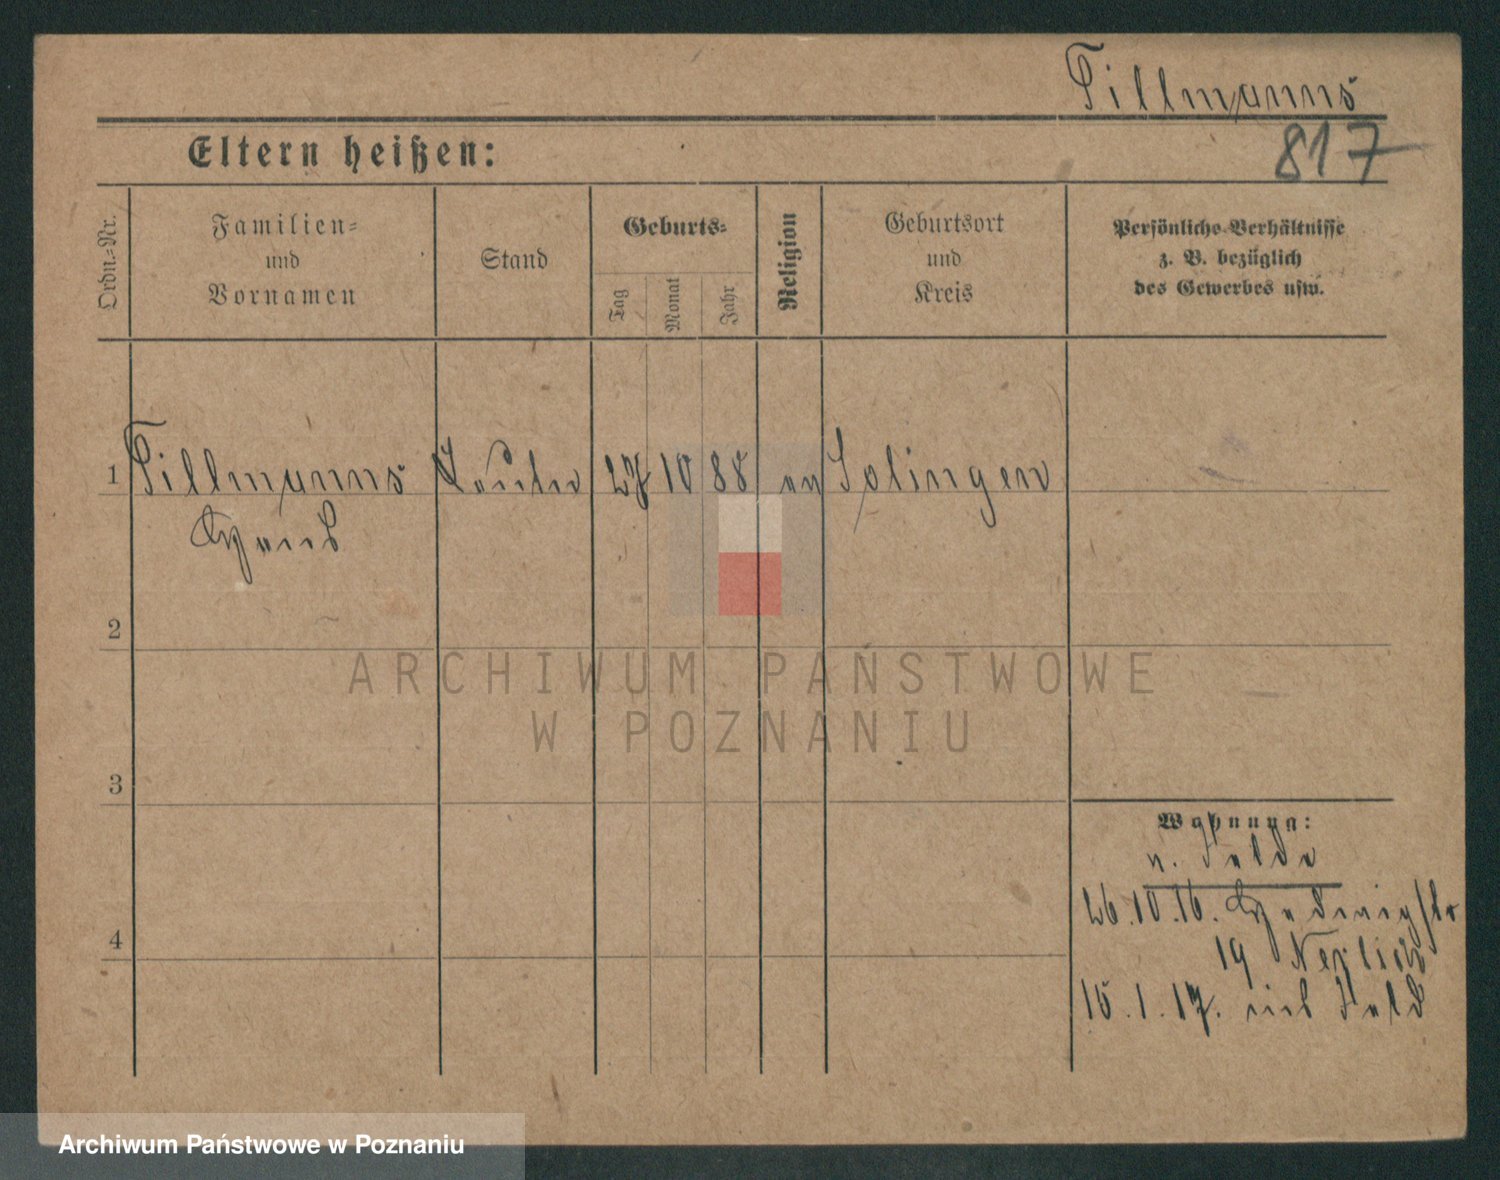 Tillmanns
817
Eltern heißen:
Ordn.-Nr.
Familien-
und
Vornamen
Stand
Geburts-
Tag
Monat
Jahr
Religion
Geburtsort
und
Kreis
Persönliche Verhältnisse
z. B. bezüglich
des Gewerbes usw.
1 Tillmanns 27 10 88 ev Solingen
Hans
2
3
4
Wohnung:
v. Felde
26.10.16. Hedwigstr
19
15.1.17. ins Feld
ARCHIWUM PAŃSTWOWE
W POZNANIU
Archiwum Państwowe w Poznaniu